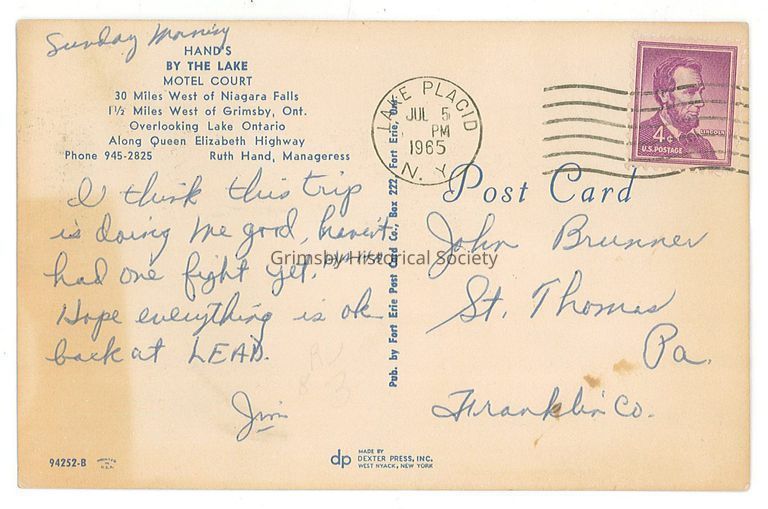 Sunday Morning
HAND'S
BY THE LAKE
MOTEL COURT
30 Miles West of Niagara Falls
1½ Miles West of Grimsby, Ont.
Overlooking Lake Ontario
Along Queen Elizabeth Highway
Phone 945-2825 Ruth Hand, Manageress
I think this trip
is doing me good, haven't
had one fight yet.
Hope everything is ok
back at LEAD.
Jim
94252-B
Pub. by Fort Erie Post Card Co., Box 222, Fort Erie, Ont.
LAKE PLACID
JUL 5
PM
1965
N. Y.
4¢
LINCOLN
U.S. POSTAGE
Post Card
John Brunner
St. Thomas
Pa.
Franklin Co.
Grimsby Historical Society
dp
MADE BY
DEXTER PRESS, INC.
WEST NYACK, NEW YORK